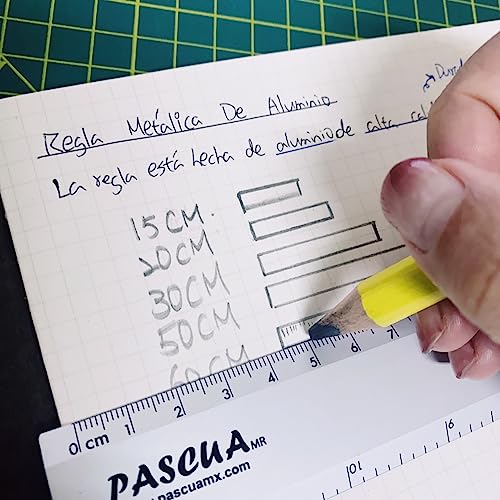 Regla Metálica De Aluminio
La regla está hecha de aluminio de alta
15CM.
20CM
30CM
50CM
60CM
0 1 2 3 4 5 6 7
cm
PASCUA MR
www.pascuamx.com
10 9